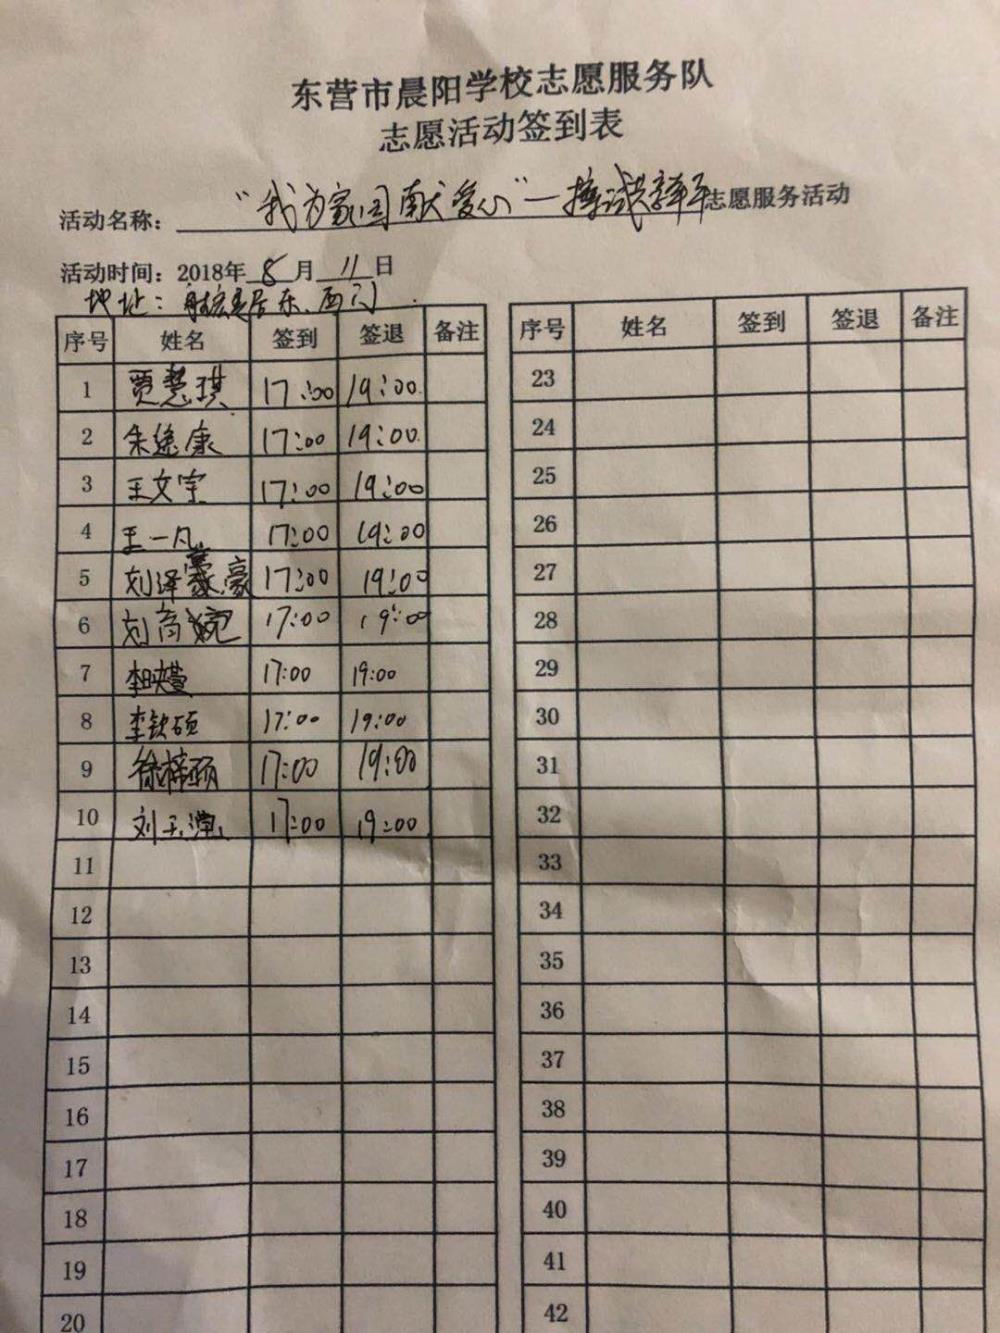 东营市晨阳学校志愿服务队
志愿活动签到表
活动名称：“我为家园献爱心”—擦拭共享单车志愿服务活动
活动时间：2018年8月11日
地址：居东、西门
序号 姓名 签到 签退 备注
1 贾慧琪 17:00 19:00
2 朱途康 17:00 19:00
3 王文宇 17:00 19:00
4 王一凡 17:00 19:00
5 刘泽豪 17:00 19:00
6 刘育婉 17:00 19:00
7 李 17:00 19:00
8 李钦硕 17:00 19:00
9 徐梓硕 17:00 19:00
10 刘玉 17:00 19:00
11
12
13
14
15
16
17
18
19
20
序号 姓名 签到 签退 备注
23
24
25
26
27
28
29
30
31
32
33
34
35
36
37
38
39
40
41
42